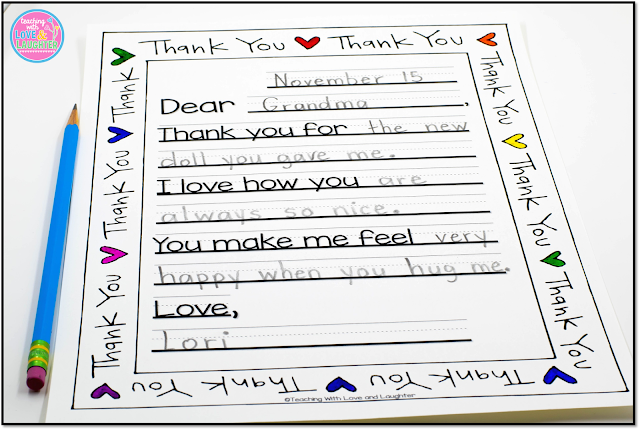 teaching
with
LOVE &
LAUGHTER
Thank You Thank You
November 15
Dear Grandma,
Thank you for the new
doll you gave me.
I love how you are
always so nice.
You make me feel very
happy when you hug me.
Love,
Lori
Thank You
Thank You
Thank You
Thank You Thank You
Thank You
Thank You
Thank
©Teaching With Love and Laughter